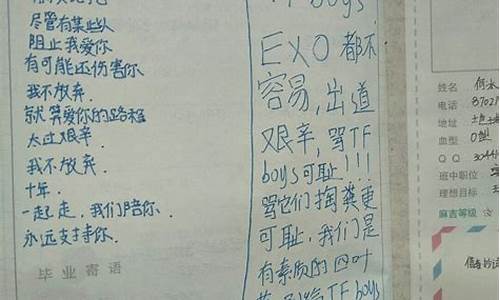 尽管有某些队
阻止我爱你
有可能还伤害你
我不放弃.
就算爱你的路程
太过艰辛.
我不放弃.
十年.
一起走,我们陪你.
永远支持你.
毕业寄语
boys
EXO都不
容易,出道
艰辛,骂TF
boys可耻!!!
骂它们掏粪更
可耻,我们是
有素质的四叶
TF boys
姓名
电话 8702
地址
血型 O型
QQ 3044
班中职位
理想目标
麻吉等级